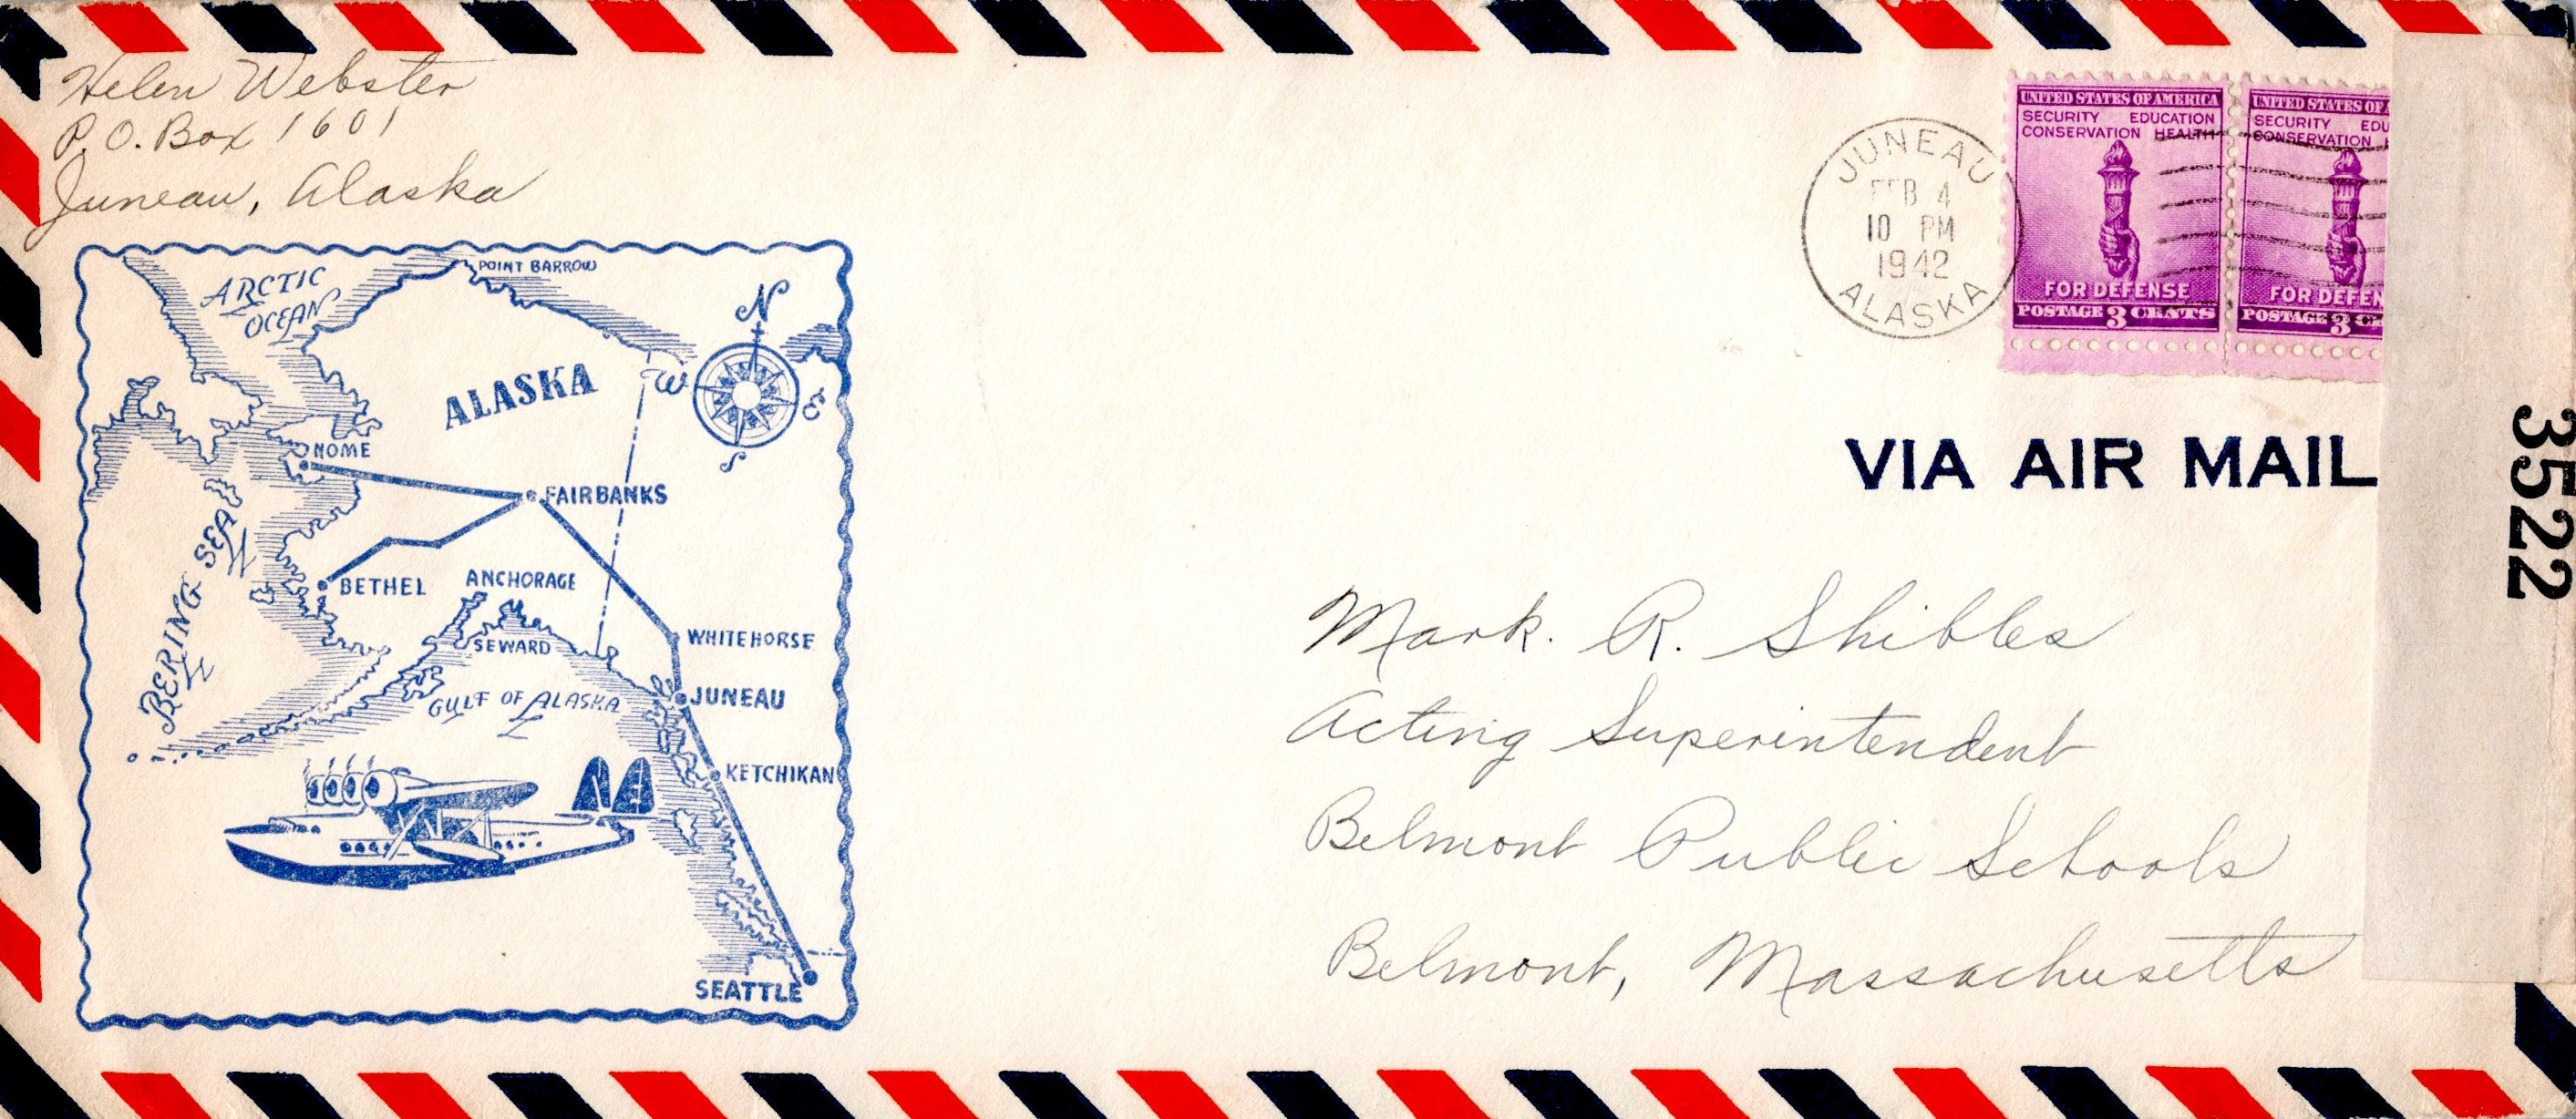 Helen Webster
P.O. Box 1601
Juneau, Alaska
JUNEAU
FEB 4
10 PM
1942
ALASKA
UNITED STATES OF AMERICA
SECURITY EDUCATION
CONSERVATION HEALTH
FOR DEFENSE
POSTAGE 3 CENTS
UNITED STATES OF A
SECURITY EDU
CONSERVATION H
FOR DEFEN
POSTAGE 3 CE
3522
VIA AIR MAIL
Mark. R. Shibles
Acting Superintendent
Belmont Public Schools
Belmont, Massachusetts
POINT BARROW
ARCTIC
OCEAN
N
W
E
S
ALASKA
NOME
FAIRBANKS
BERING SEA
BETHEL
ANCHORAGE
SEWARD
WHITEHORSE
GULF OF ALASKA
JUNEAU
KETCHIKAN
SEATTLE